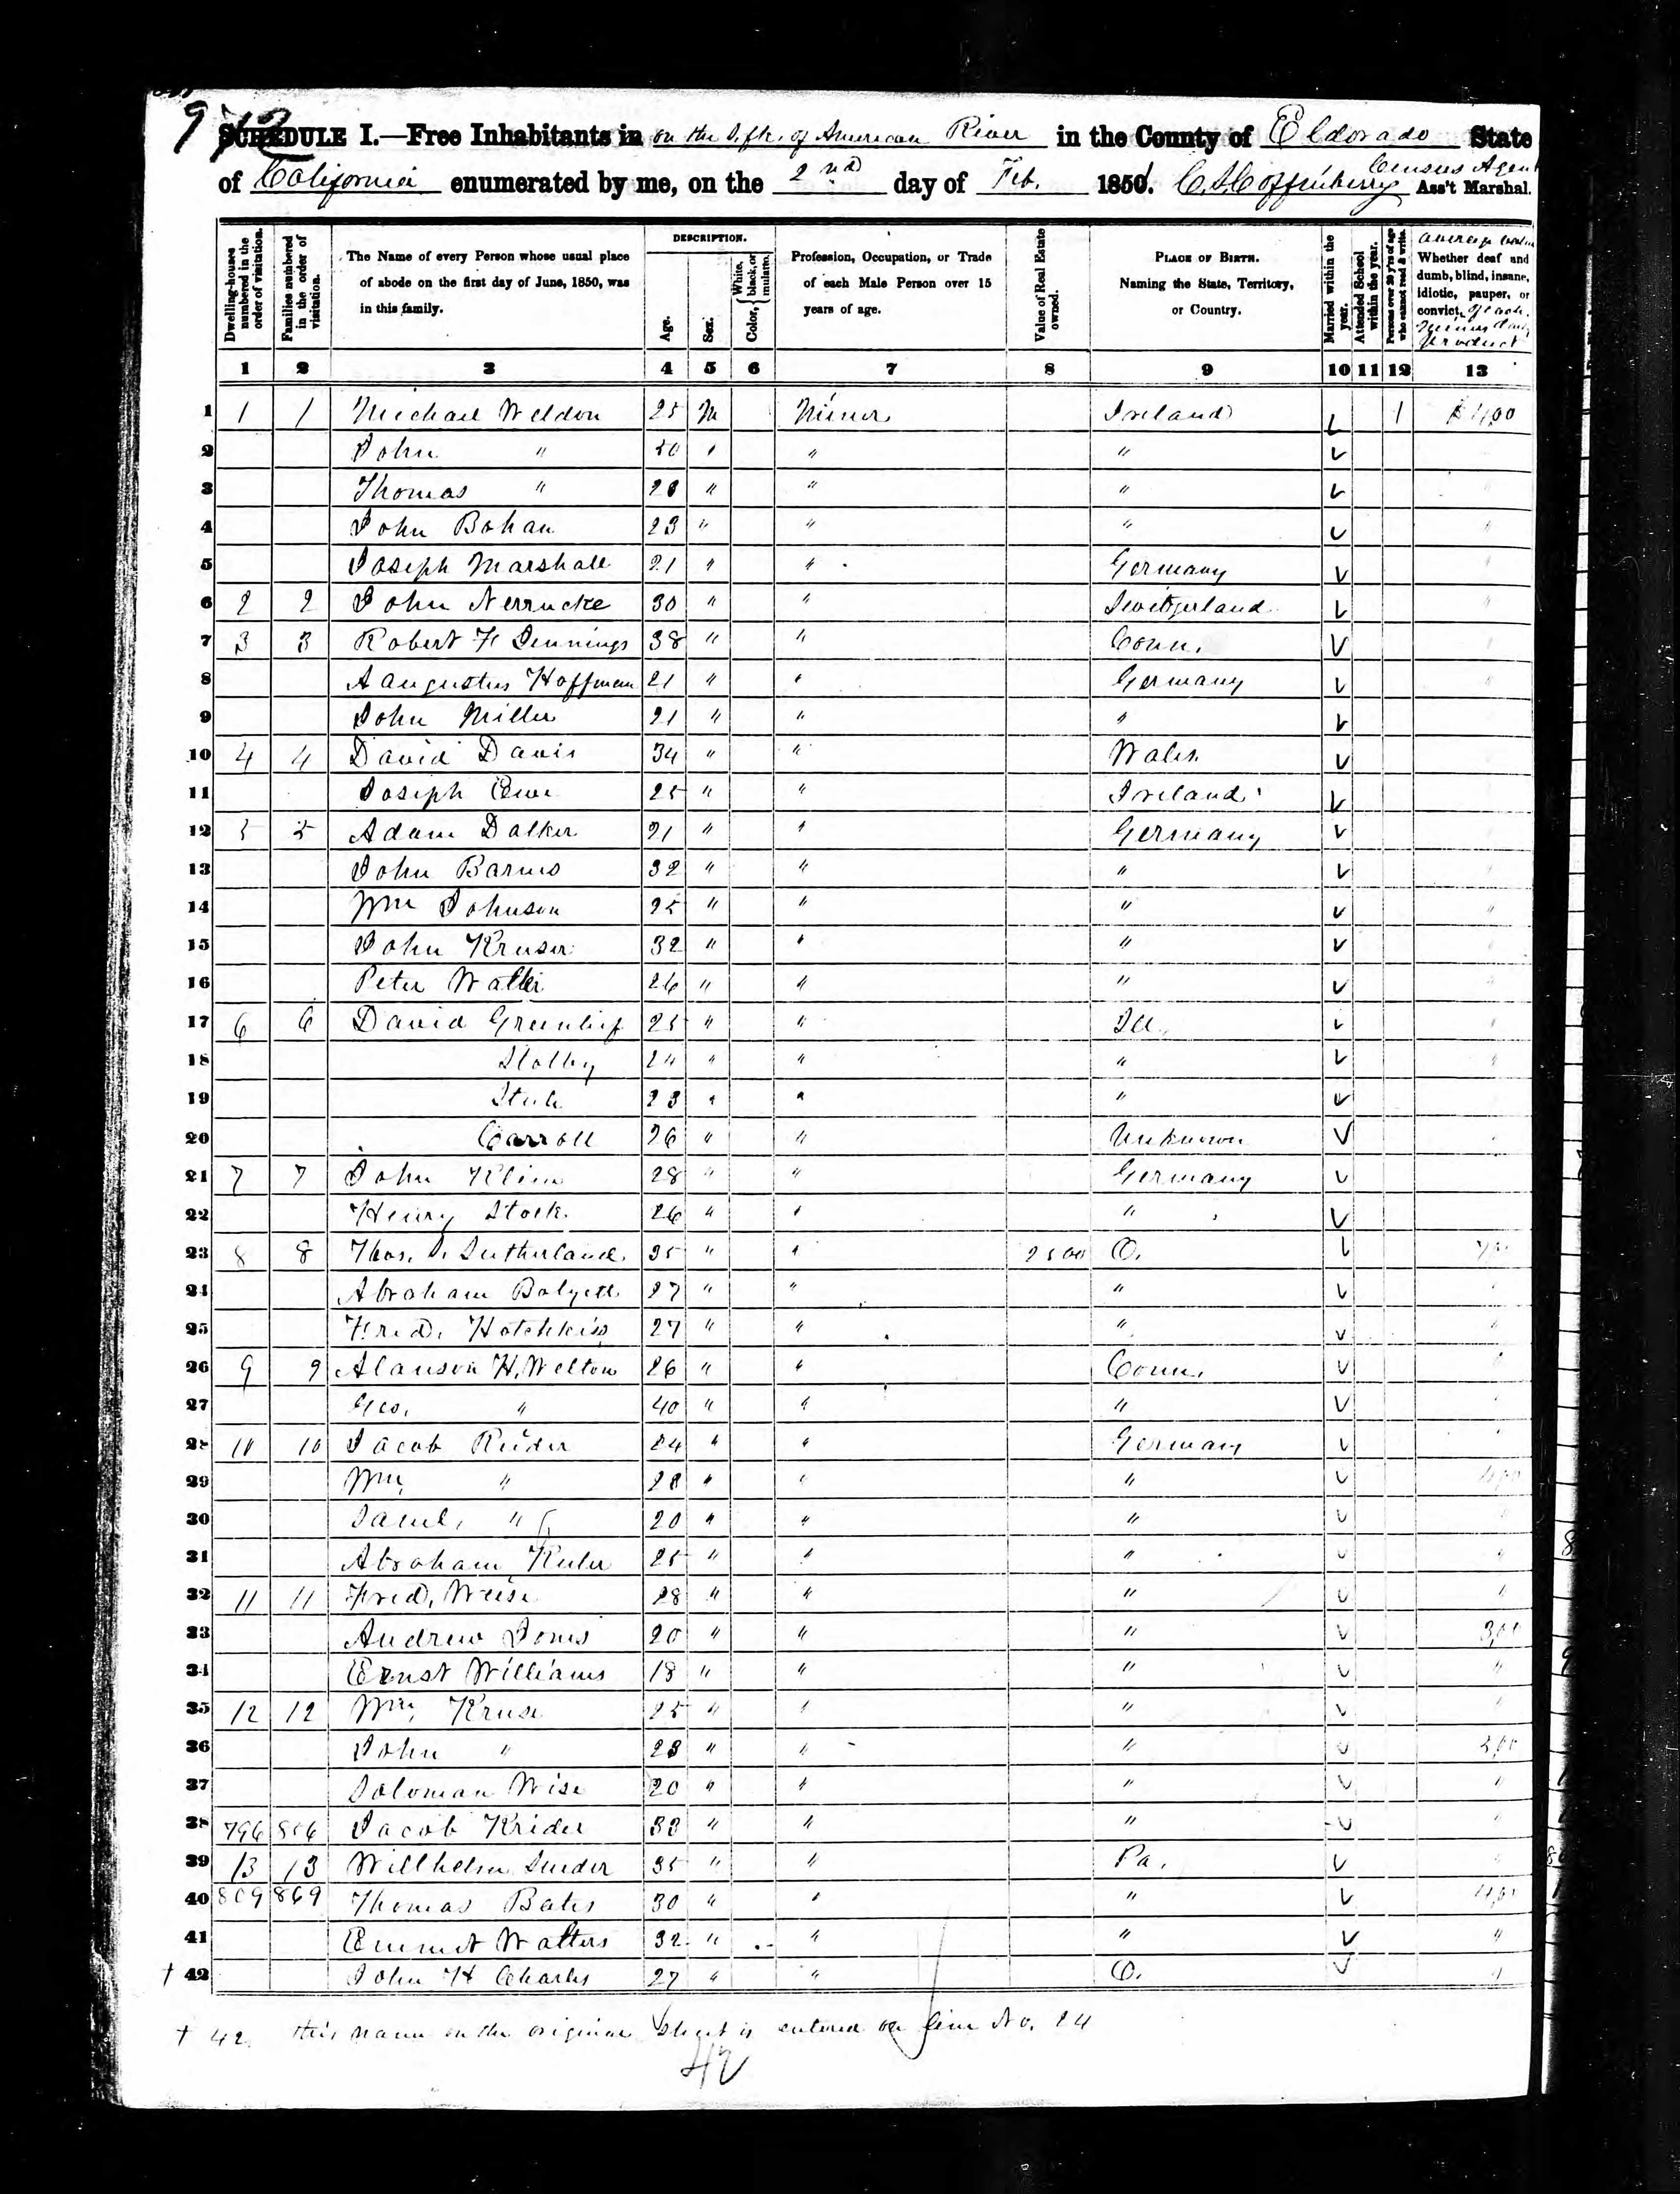 SCHEDULE I.—Free Inhabitants in on the S. fk. of American River in the County of Eldorado State
of California enumerated by me, on the 2nd day of Feb. 1851. Census Agent Ass't Marshal.
Dwelling-houses numbered in the order of visitation.
Families numbered in the order of visitation.
The Name of every Person whose usual place of abode on the first day of June, 1850, was in this family.
DESCRIPTION.
Age.
Sex.
Color, { White, black, or mulatto.
Profession, Occupation, or Trade of each Male Person over 15 years of age.
Value of Real Estate owned.
PLACE OF BIRTH. Naming the State, Territory, or Country.
Married within the year.
Attended School within the year.
Persons over 20 y'rs of age who cannot read & write.
Whether deaf and dumb, blind, insane, idiotic, pauper, or convict.
1 2 3 4 5 6 7 8 9 10 11 12 13
1 1 1 Michael Weldon 25 M Miner Ireland 1 $4,00
2 John " 50 " " "
3 Thomas " " " "
4 John Bohan 23 " " "
5 Joseph Marshall 21 " " Germany
6 2 2 John Nerrucke 30 " " Switzerland "
7 3 3 Robert F Jennings 38 " " Conn.
8 Aaugustus Hoffman 21 " " Germany "
9 John Miller 21 " " "
10 4 4 David Davis 34 " " Wales
11 Joseph 25 " " Ireland
12 5 5 Adam Dalker 21 " " Germany
13 John Barnes 32 " " "
14 Wm Johnson 25 " " " "
15 John Kruser 32 " " "
16 Peter Walter 26 " " "
17 6 6 David Greenlief 25 " " Ill.
18 24 " " " "
19 23 " " "
20 Carroll 26 " " Unknown
21 7 7 John Kline 28 " " Germany
22 Henry Stock 26 " " "
23 8 8 Thos. S. Sutherland 35 " " 2500 O.
24 Abraham 27 " " "
25 Fred. Hotchkiss 27 " " " "
26 9 9 Alanson H. Welton 26 " " Conn. "
27 Geo. " 40 " " " "
28 10 10 Jacob Rieder 24 " " Germany "
29 Wm " 28 " " " 4,00
30 Saml. " 20 " " " "
31 Abraham 25 " " " "
32 11 11 Fred. Weise 28 " " " "
33 Andrew Jones 20 " " " 3,00
34 Ernst Williams 18 " " " "
35 12 12 Wm Kruse 25 " " " "
36 John " 23 " " "
37 Soloman Wise 20 " " " "
38 796 856 Jacob Krider 33 " " " "
39 13 13 Willhelm Snider 35 " " Pa. "
40 809 869 Thomas Bates 30 " " " 4,00
41 Emmet Walters 32 " " " "
† 42 John H Charles 27 " " O. "
† 42. this name on the original sheet is entered on line No. 24
42